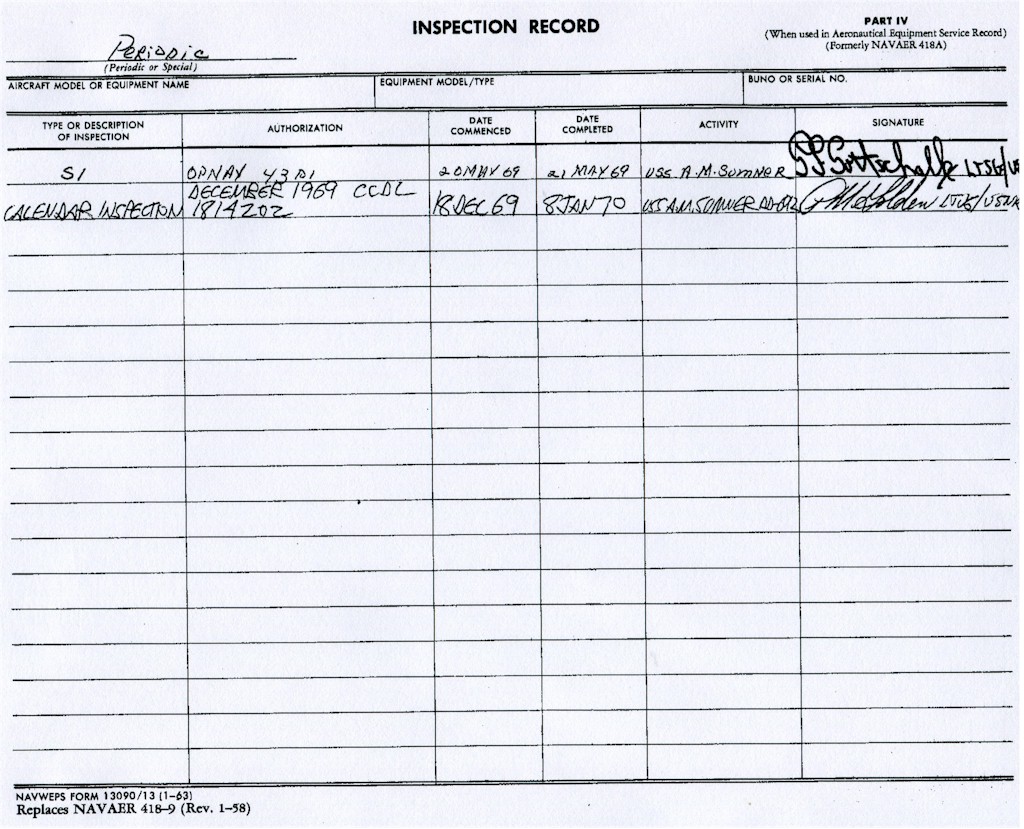 INSPECTION RECORD
PART IV
(When used in Aeronautical Equipment Service Record)
(Formerly NAVAER 418A)
Periodic
(Periodic or Special)
AIRCRAFT MODEL OR EQUIPMENT NAME
EQUIPMENT MODEL/TYPE
BUNO OR SERIAL NO.
TYPE OR DESCRIPTION OF INSPECTION
AUTHORIZATION
DATE COMMENCED
DATE COMPLETED
ACTIVITY
SIGNATURE
S1 OPNAV 43 P1 20 MAY 69 21 MAY 69 USS. A.M. Sumner Gottschalk LTJG/
CALENDAR INSPECTION DECEMBER 1969 CCDL 181420Z 18 DEC 69 8 JAN 70 USS A.M. SUMNER DD-692 LTJG/USNR
NAVWEPS FORM 13090/13 (1-63)
Replaces NAVAER 418-9 (Rev. 1-58)